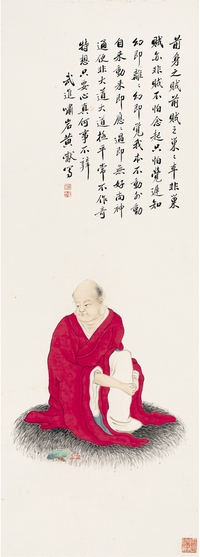 前身之賊前賊之巢之卒非巢
賊亦非賊不怕念起只怕覺遲知
幻即離之幻即覺我本不動外動
自来動来即應之過即無好尚神
通便非大道大道極平常不作奇
特想只要心真何事不辨
武進嘯岩黄